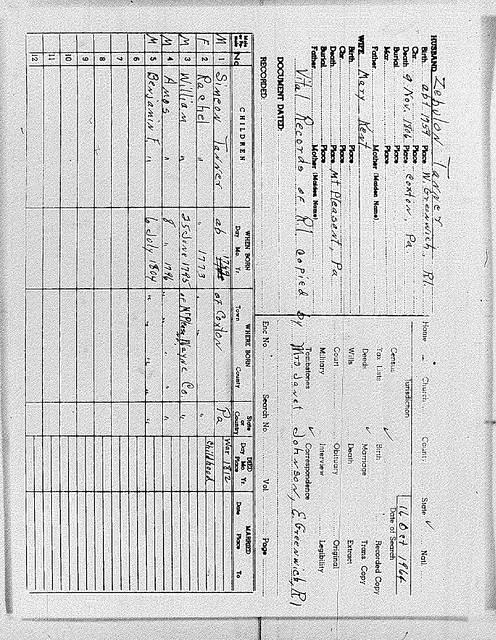 HUSBAND Zebulon Tanner
Birth abt 1759 Place W. Greenwich, R.I.
Chr. Place
Death 9 Nov. 1806 Place Coxton, Pa
Burial Place
Mar. Place
Father Mother (Maiden Name)
WIFE Mary Kent
Birth Place
Chr. Place
Death Place Mt Pleasent, Pa
Burial Place
Father Mother (Maiden Name)
Home Church County State ✓ Natl.
Jurisdiction
16 Oct 1964
Date of Search
Census ✓ Birth Recorded Copy
Tax Lists ✓ Marriage Trans. Copy
Deeds Death Extract
Wills Obituary Original
Court Interview Legibility
Military ✓ Correspondence
Tombstones
Vital Records of R.I. copied by Mrs Janet Johnson, E. Greenwich, R.I
DOCUMENT DATED:
RECORDED: Enc No Search No Vol. Page
No. CHILDREN WHEN BORN Day Mo. Yr. WHERE BORN Town County State or Country DIED Day Mo. Yr. Place MARRIED Date Place To
M 1 Simeon Tanner ab 1769 of Coxton Pa War 1812
F 2 Rachel " " 1773 " " childhood
M 3 William " 25 June 1795 of Mt Pleas, Wayne Co. "
M 4 Amos " 8 " 1796 " " "
M 5 Benjamin F. " 6 July 1804 " " "
6
7
8
9
10
11
12